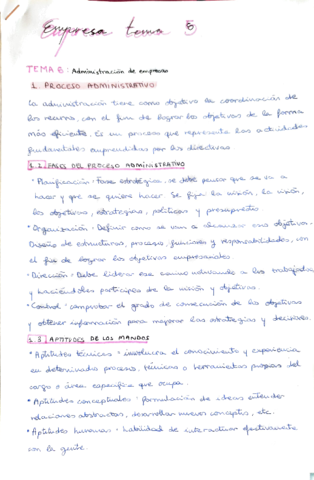 Empresa tema 5
TEMA 8: Administración de empresas
1. PROCESO ADMINISTRATIVO:
La administración tiene como objetivo la coordinación de
los recursos, con el fin de lograr los objetivos de la forma
más eficiente. Es un proceso que representa las actividades
fundamentales emprendidas por los directivos
1.2. FASES DEL PROCESO ADMINISTRATIVO
• Planificación: fase estratégica, se debe pensar que se va a
hacer y qué se quiere hacer. Se fija la misión, la visión,
los objetivos, estrategias, políticas y presupuestos
• Organización: Definir como se van a alcanzar esos objetivos.
Diseño de estructuras, procesos, funciones y responsabilidades, con
el fin de lograr los objetivos empresariales.
• Dirección: Debe liderar ese camino motivando a los trabajadores
y haciéndoles partícipes de la misión y objetivos.
• Control: comprobar el grado de consecución de los objetivos
y obtener información para mejorar las estrategias y decisiones.
1.3. APTITUDES DE LOS MANDOS
• Aptitudes técnicas: involucra el conocimiento y experiencia
en determinados procesos, técnicas o herramientas propias del
cargo o área específica que ocupa.
• Aptitudes conceptuales: formulación de ideas entender
relaciones abstractas, desarrollar nuevos conceptos, etc.
• Aptitudes humanas: habilidad de interactuar efectivamente
con la gente.